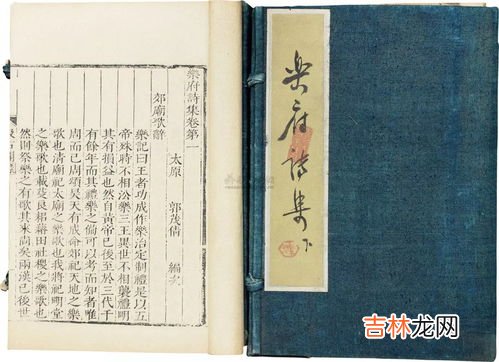 樂府詩集卷第一
太原 郭茂倩 編次
郊廟歌辭
樂記曰王者功成作樂治定制禮是以五
帝殊時不相沿樂三王異世不相襲禮明
其有損益也然自黃帝已後至於三代千
有餘年而其禮樂之備可以考而知者唯
周而已周頌昊天有成命郊祀天地之樂
歌也清廟祀太廟之樂歌也我將祀明堂
之樂歌也載芟良耜藉田社稷之樂歌也
然則祭樂之有歌其來尚矣兩漢已後世
樂府詩集 下
吉林龙网